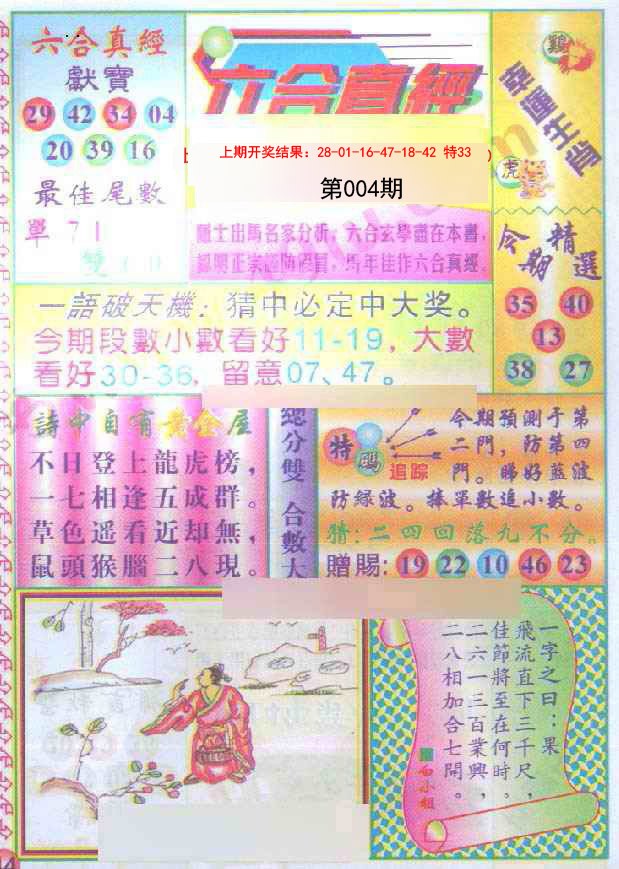 六合真經
獻寶
29 42 34 04
20 39 16
最佳尾數
單 71
雙
六合真經
上期开奖结果：28-01-16-47-18-42 特33
第004期
隱士出馬名家分析，六合玄學盡在本書，
馬年佳作六合真經
幸運生肖
鷄
虎
今期精選
35 40
13
38 27
一語破天機：猜中必定中大奖。
今期段數小數看好11-19，大數
看好30-36，留意07、47。
詩中自有黃金屋
不日登上龍虎榜，
一七相逢五成群。
草色遥看近却無，
鼠頭猴腦二八現。
總分雙 合數大
特碼
追踪
今期預測于第
二門，防第四
門。睇好藍波
防緑波。捧單數追小數。
猜：二四回落九不分。
贈賜：19 22 10 46 23
一字之曰：果
飛流直下三千尺，
佳節將至在何時。
二六一三百業興，
二八相加合七開。
白小姐